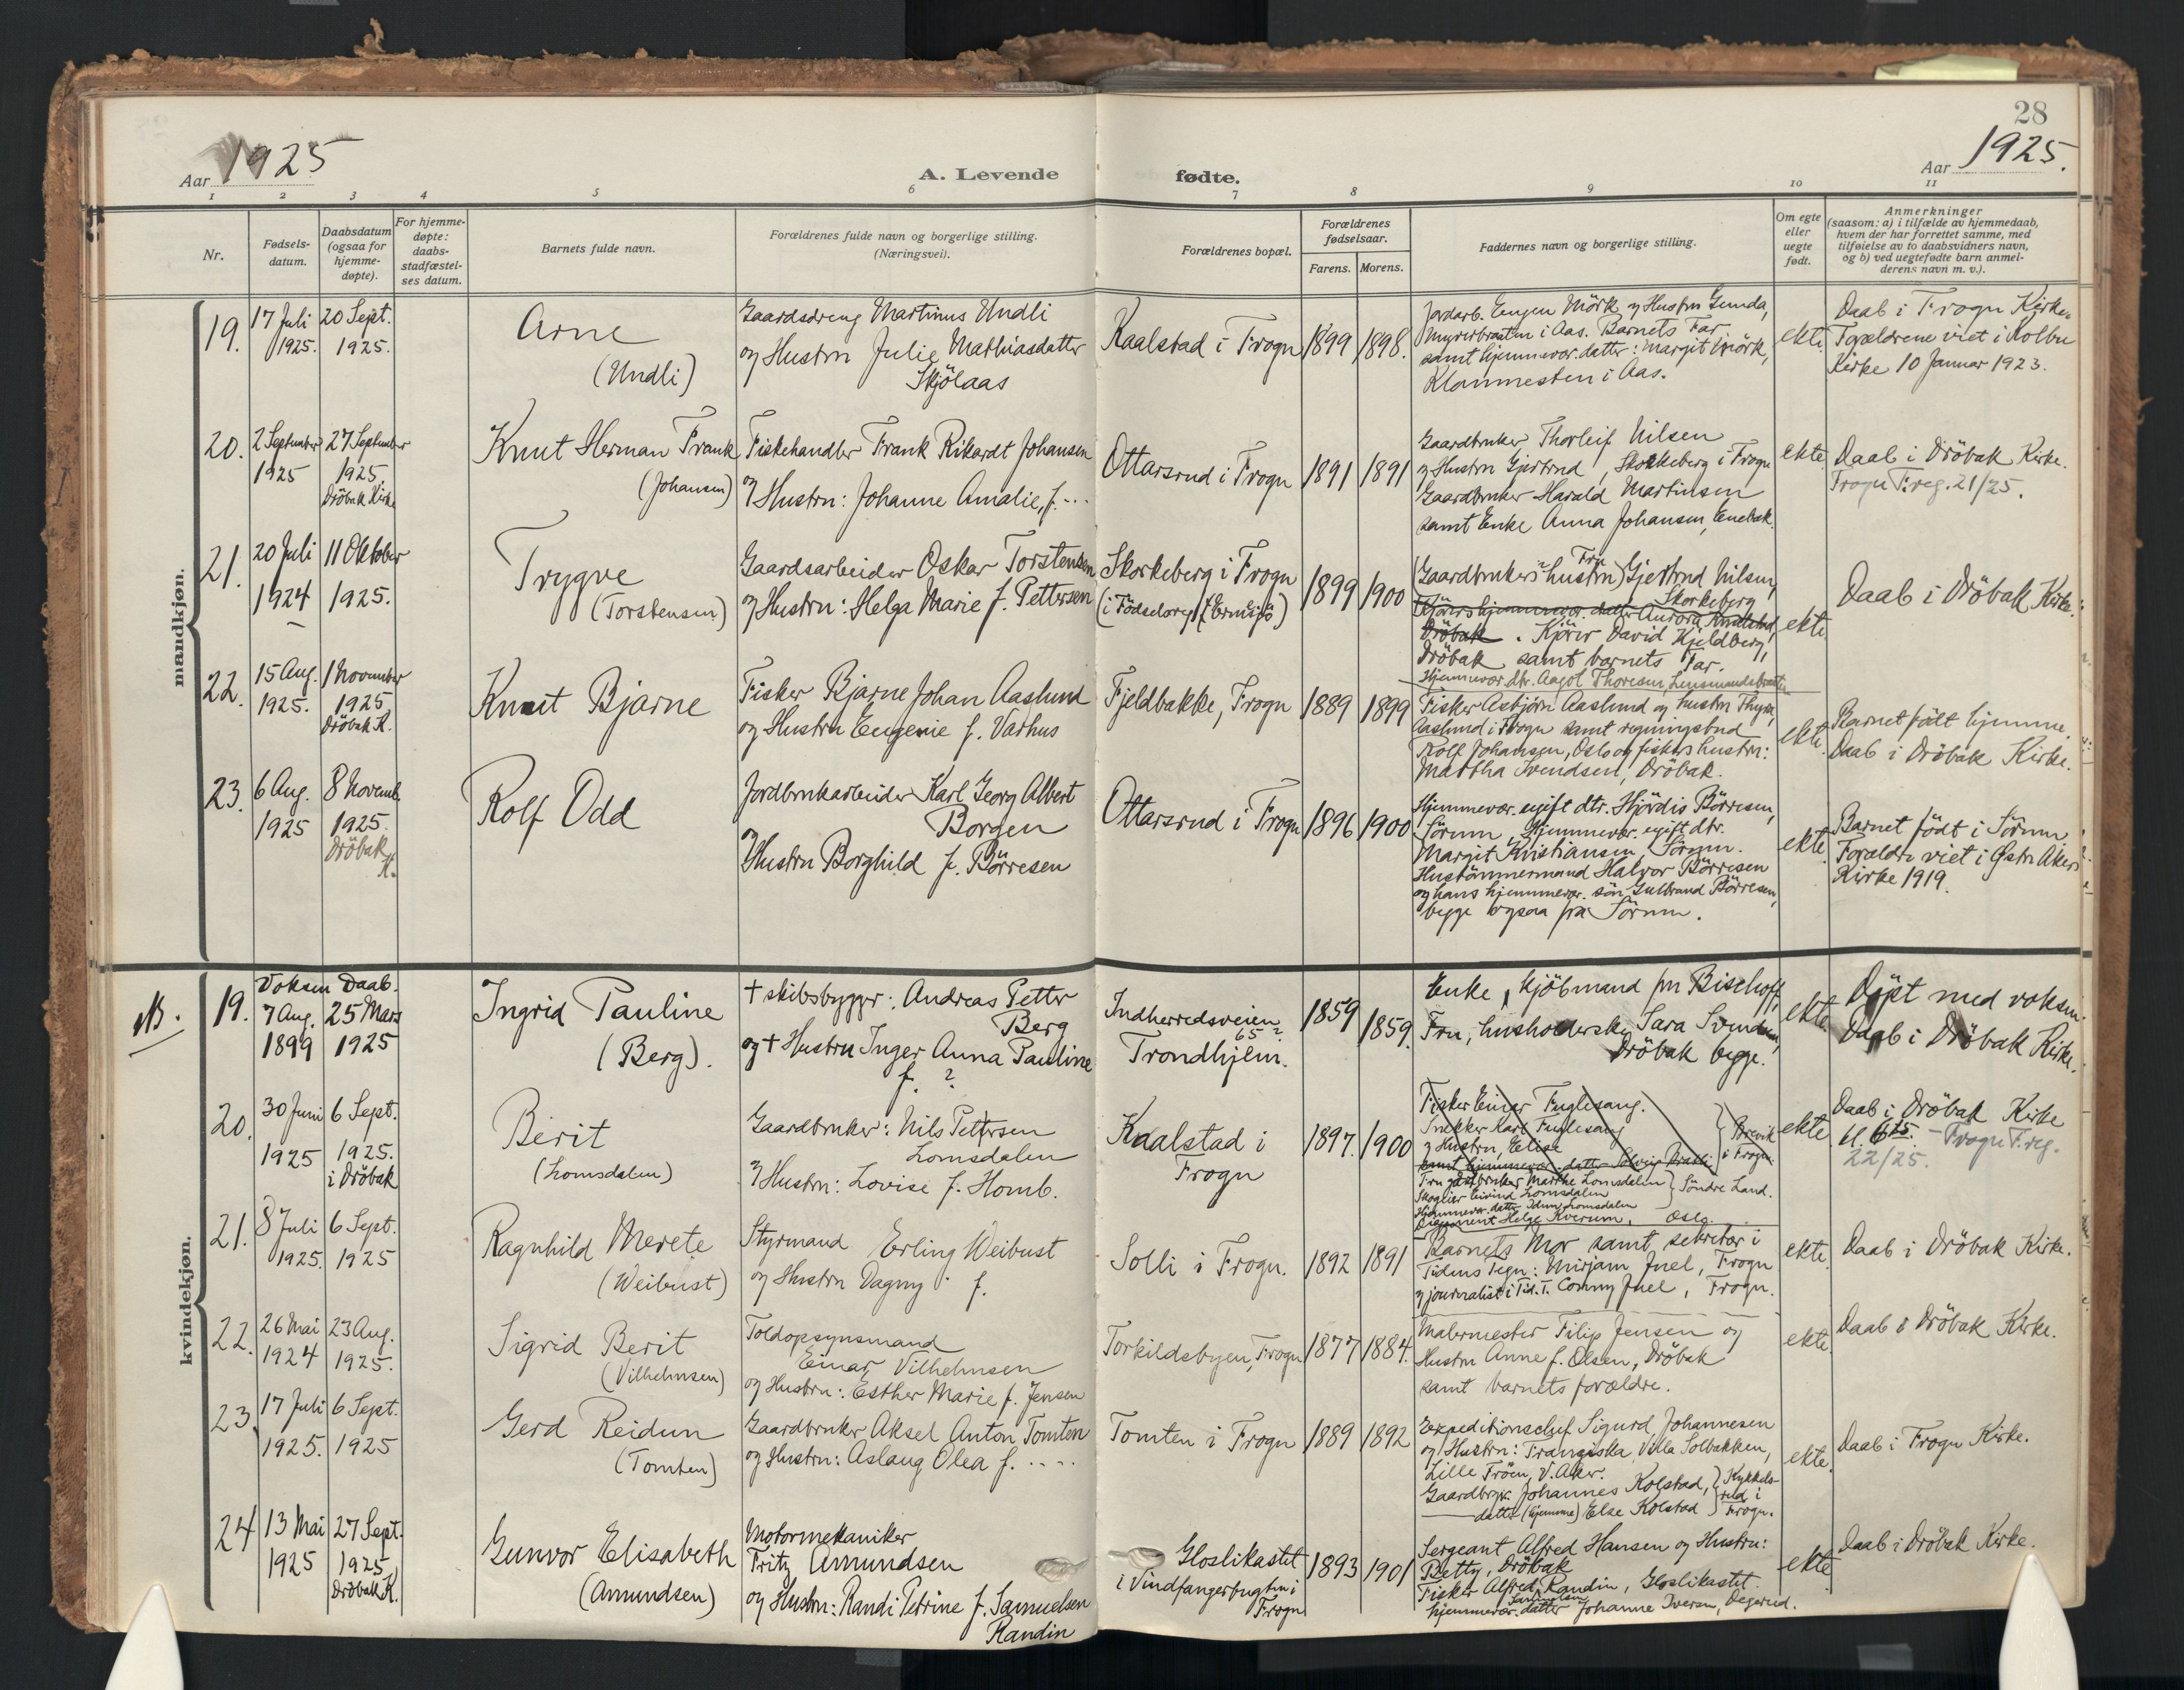 28
Aar 1925
A. Levende
fødte.
Aar 1925.
1 2 3 4 5 6 7 8 9 10 11
Nr.
Fødsels-
datum.
Daabsdatum
(ogsaa for
hjemme-
døpte).
For hjemme-
døpte:
daabs-
stadfæstel-
ses datum.
Barnets fulde navn.
Forældrenes fulde navn og borgerlige stilling.
(Næringsvei).
Forældrenes bopæl.
Forældrenes
fødselsaar.
Farens. Morens.
Faddernes navn og borgerlige stilling.
Om egte
eller
uegte
født.
Anmerkninger
(saasom: a) i tilfælde av hjemmedaab,
hvem der har forrettet samme, med
tilføielse av to daabsvidners navn,
og b) ved uegtefødte barn anmel-
derens navn m. v.).
mandkjøn.
19.
17 Juli
1925.
20 Sept.
1925.
Arne
(Undli)
Gaardsdreng Martinus Undli
og Hustru Julie Mathiasdatter
Skjölaas
Kaalstad i Frogn
1899
1898.
Jordarb. Eugen Mörk og Hustru Gunda,
i Aas. Barnets Far
samt hjemmevær. datter: Margit Mörk,
i Aas.
ekte.
Daab i Frogn Kirke.
Forældrene viet i Kolbu
Kirke 10 Januar 1923.
20.
2 September
1925
27 September
1925.
Dröbak Kirke
Knut Herman Frank
(Johansen)
Fiskehandler Frank Rikardt Johansen
og Hustru: Johanne Amalie, f. ...
Ottarsrud i Frogn
1891
1891
Gaardbruker Thorleif Nilsen
og Hustru Gjertrud, Skorkeberg i Frogn
Gaardbruker Harald Martinsen
samt Enke Anna Johansen, Enebak.
ekte.
Daab i Dröbak Kirke.
Frogn F.reg. 21/25.
21.
20 Juli
1924
11 Oktober
1925.
Trygve
(Torstensen)
Gaardsarbeider Oskar Torstensen
og Hustru: Helga Marie f. Pettersen
Skorkeberg i Frogn
(i Födselsreg.
1899
1900
(Gaardbrukers hustru) Fru Gjertrud Nilsen,
Skorkeberg
Dröbak. Kjörer David Kjeldberg,
Dröbak samt barnets Far.
Hjemmevær. dtr. Aagot Thoresen,
ekte.
Daab i Dröbak Kirke.
22.
15 Aug.
1925.
1 November
1925
Dröbak K.
Knut Bjarne
Fisker Bjarne Johan Aaslund
og Hustru Eugenie f. Varhus
Fjeldbakke, Frogn
1889
1899
Fisker Asbjörn Aaslund og hustru Thyra,
Aaslund i Frogn samt regningsbud
Rolf Johansen, Oslo og fiskers hustru:
Martha Svendsen, Dröbak.
ekte.
Barnet födt hjemme.
Daab i Dröbak Kirke.
23.
6 Aug.
1925
8 Novemb.
1925.
Dröbak
K.
Rolf Odd
Jordbrukarbeider Karl Georg Albert
Borgen
og Hustru Borghild f. Börresen
Ottarsrud i Frogn
1896
1900
Hjemmevær. ugift dtr. Hjördis Börresen,
Sörum, Hjemmevær. ugift dtr.
Margit Kristiansen, Sörum.
Hustömmermand Halvor Börresen
og hans hjemmevær. sön Gulbrand Börresen,
begge ogsaa fra Sörum.
ekte.
Barnet födt i Sörum
Forældre viet i Østre Akers
Kirke 1919.
kvindekjøn.
19.
Voksen Daab.
7 Aug.
1899
25 Mars
1925
Ingrid Pauline
(Berg).
† skibsbygger: Andreas Petter
Berg
og † Hustru Inger Anna Pauline
f. ?
Indherredsveien
65 ?
Trondhjem.
1859
1859.
Enke, kjöbmand fru Bischoff,
Fru, husholderske Sara Svendsen,
Dröbak begge.
ekte.
Döpt med voksen
Daab i Dröbak Kirke.
20.
30 Juni
1925
6 Sept.
1925.
i Dröbak
Berit
(Lomsdalen)
Gaardbruker: Nils Pettersen
Lomsdalen
og Hustru: Lovise f. Homb.
Kaalstad i
Frogn
1897.
1900
Fisker Einar Fuglesang.
Snekker Karl Fuglesang
og Hustru, Elise
samt hjemmevær. datter Solveig
Brevik
i Frogn.
Fru gaardbruker Marthe Lomsdalen
Eivind Lomsdalen
Hjemmevær. datter Idun Lomsdalen
Söndre Land.
Helge Kverum, Oslo.
ekte.
Daab i Dröbak Kirke
Frogn F.reg.
22/25.
21.
8 Juli
1925.
6 Sept.
1925
Ragnhild Merete
(Weibust)
Styrmand Erling Weibust
og Hustru Dagny f.
Solli i Frogn.
1892
1891
Barnets Mor samt sekretær i
Tidens Tegn: Mirjam Juel, Frogn
og journalist i Tid. T. Conny Juel, Frogn.
ekte.
Daab i Dröbak Kirke.
22.
26 Mai
1924
23 Aug.
1925.
Sigrid Berit
(Vilhelmsen)
Toldopsynsmand
Einar Vilhelmsen
og Hustru: Esther Marie f. Jensen
Torkildsbyen, Frogn
1877
1884.
Malermester Filip Jensen og
Hustru Anne f. Olsen, Dröbak
samt barnets forældre.
ekte.
Daab i Dröbak Kirke.
23.
17 Juli
1925.
6 Sept.
1925
Gerd Reidun
(Tomten)
Gaardbruker Aksel Anton Tomten
og Hustru: Aslaug Olea f. ....
Tomten i Frogn
1889
1892
Expeditionschef Sigurd Johannesen
og Hustru: Franziska, Villa Solbakken,
Lille Fröen, V. Aker.
Gaardbrger. Johannes Kolstad,
datter (hjemme) Else Kolstad
Kykkels-
rud i
Frogn.
ekte.
Daab i Frogn Kirke.
24
13 Mai
1925
27 Sept.
1925
Dröbak K.
Gunvor Elisabeth
(Amundsen)
Motormekaniker
Fritz Amundsen
og Hustru: Randi Petrine f. Samuelsen
Randin
Gloslikastet
i Vindfangerbugten i
Frogn
1893
1901
Sergeant Alfred Hansen og Hustru:
Betty, Dröbak
Fisker Alfred Randin, Gloslikastet.
Samuelsen
hjemmevær. datter Johanne Iversen, Degerud.
ekte
Daab i Dröbak Kirke.